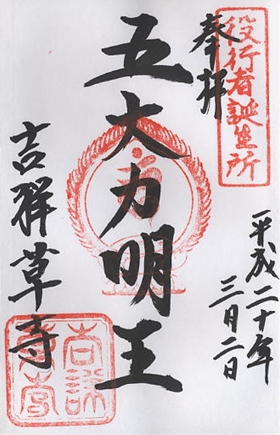 役行者誕生所
奉拝
平成二十年
三月二日
五大力明王
吉祥草寺